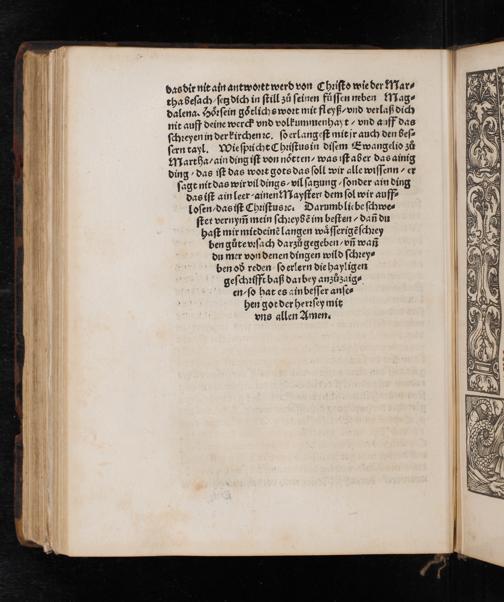 das dir nit ain antwortt werd von Christo wie der Mar⸗
tha besach / setz dich in still zů seinen füssen neben Mag⸗
dalena. Hör sein götlichs wort mit fleyß / vnd verlaß dich
nit auff deine werck vnd volkummenhayt / vnd auff das
schreyen in der kirchen ꝛc. so erlangest mit jr auch den bes⸗
sern tayl. Wie spricht Christus in disem Ewangelio zů
Martha / ain ding ist von nötten / was ist aber das ainig
ding / das ist das wort gots das soll wir alle wissenn / er
sagt nit das wir vil dings / vil satzung / sonder ain ding
das ist ain leer / ainen Mayster / dem sol wir auff⸗
losen / das ist Christus ꝛc. Darumb liebe schwe⸗
ster vernym̄ mein schreybē im besten / dañ du
hast mir mit deinē langen wässerigē schrey
ben gůte vrsach darzů gegeben / vñ wañ
du mer von denen dingen wild schrey⸗
ben oď reden / so erlern die hayligen
geschrifft baß dar bey anzůzaig⸗
en / so hat es ain besser anse⸗
hen got der herr sey mit
vns allen Amen.